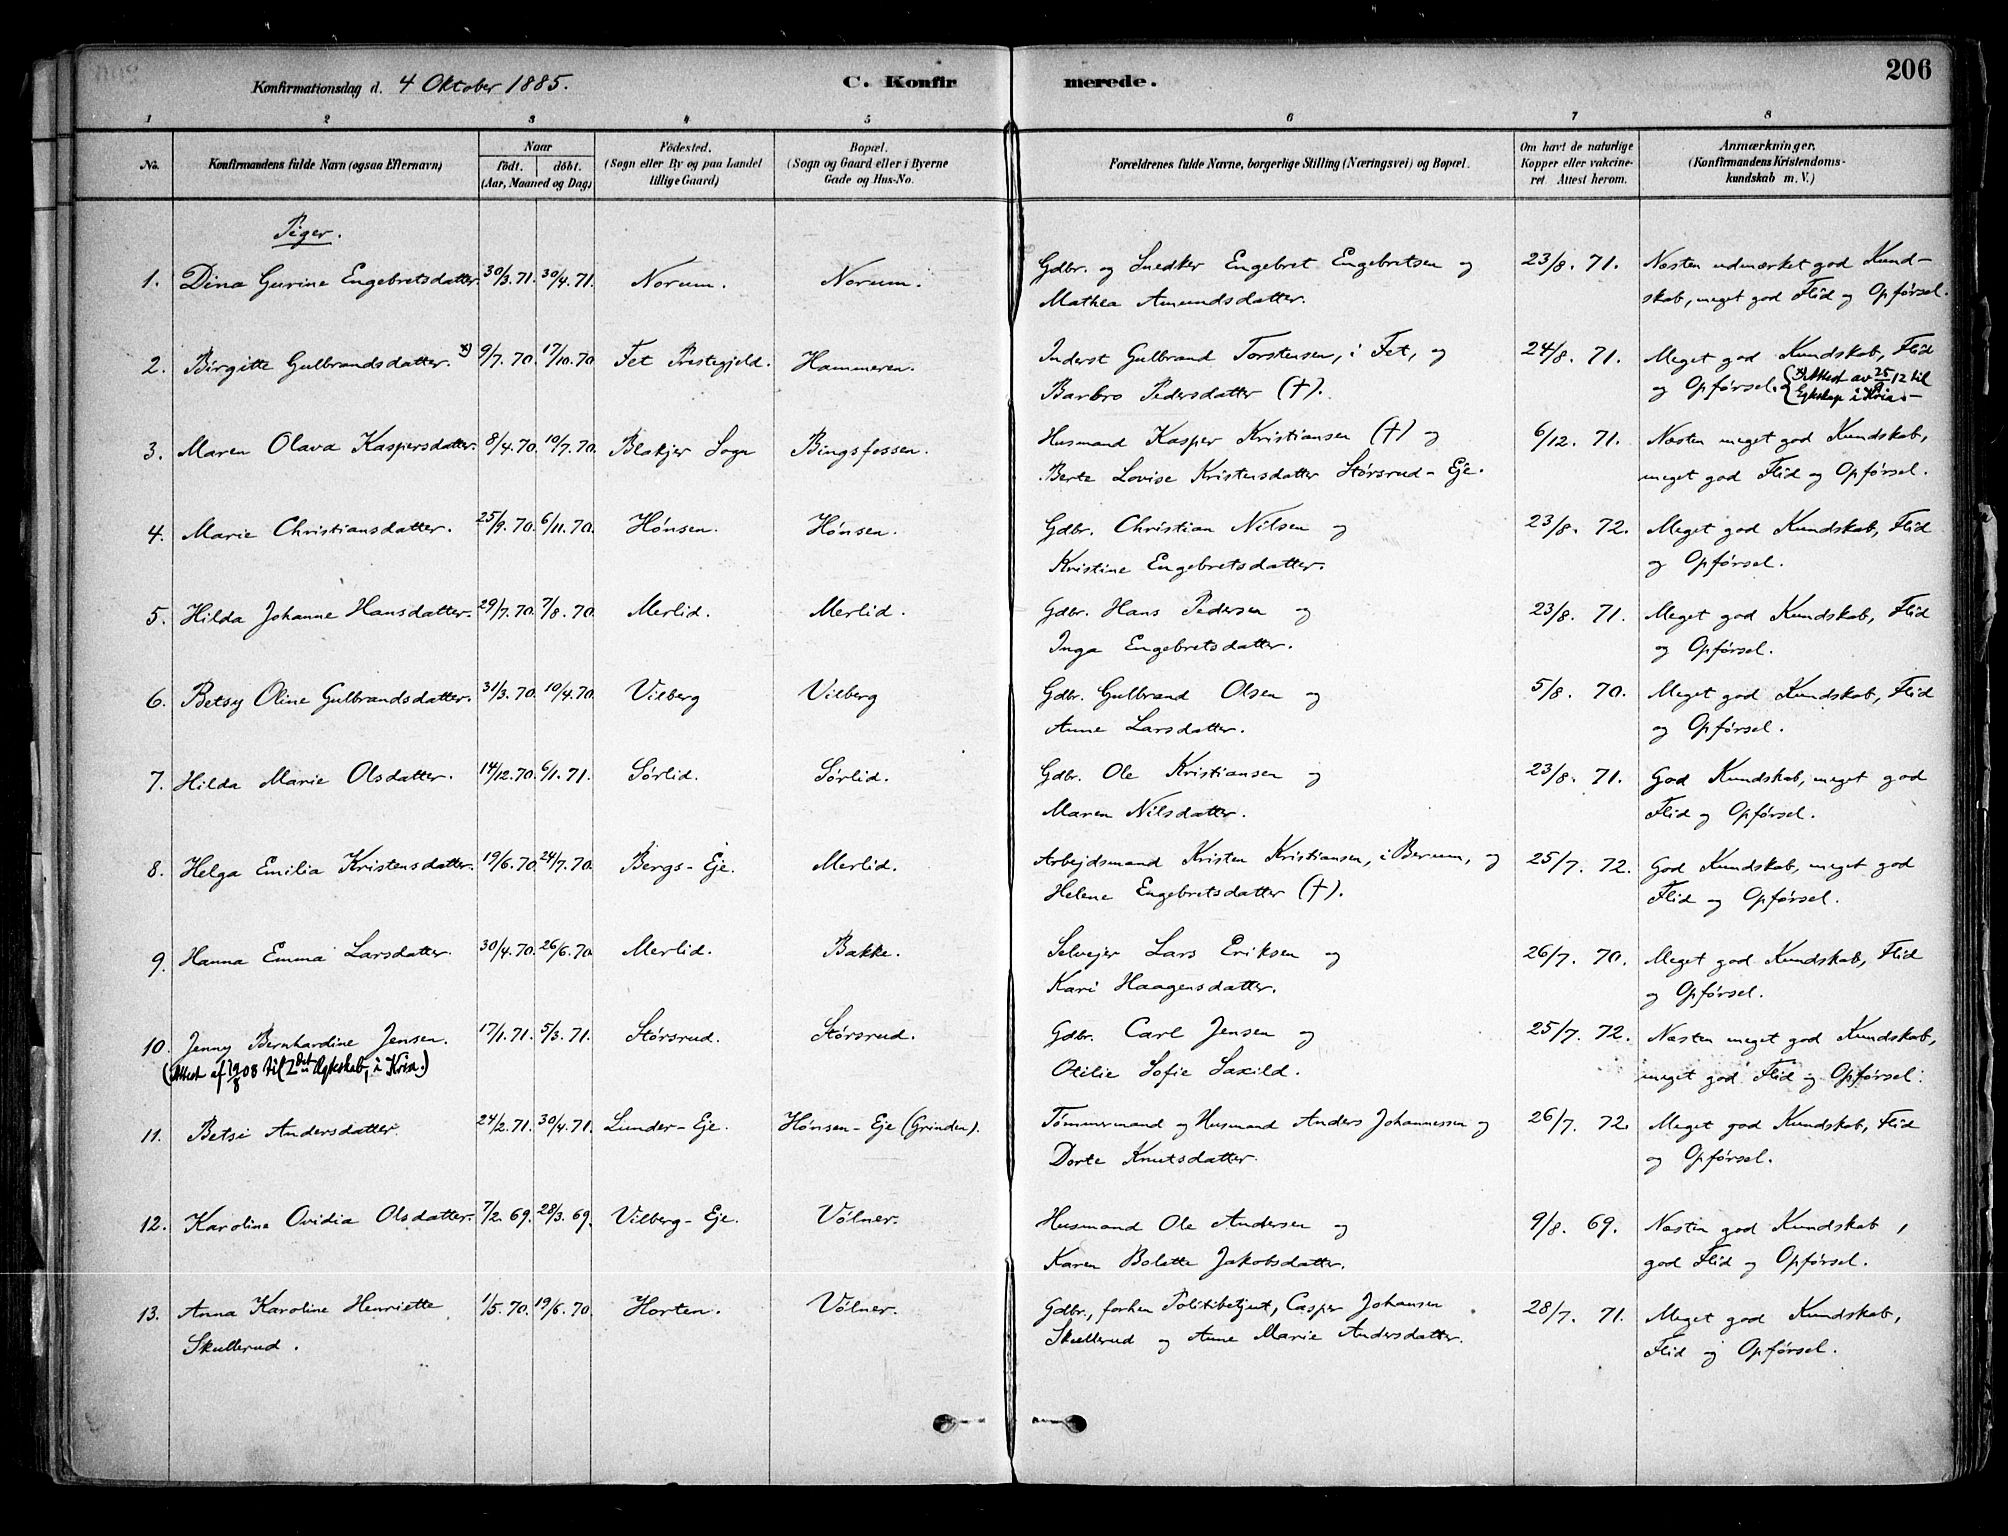 206
Konfirmationsdag d. 4 Oktober 1885.
C. Konfirmerede.
1 2 3 4 5 6 7 8
No. Konfirmandens fulde Navn (ogsaa Efternavn) Naar födt. döbt. (Aar, Maaned og Dag) Födested. (Sogn eller By og paa Landet tillige Gaard) Bopæl. (Sogn og Gaard eller i Byerne Gade og Hus-No. Forældrenes fulde Navne, borgerlige Stilling (Næringsvei) og Bopæl. Om havt de naturlige Kopper eller vakcineret. Attest herom. Anmærkninger. (Konfirmandens Kristendomskundskab m. V.)
Piger.
1. Dina Gurine Engebretsdatter 30/3.71. 30/4.71. Norum. Norum. Gdbr. og Snedker Engebret Engebretsen og 23/8. 71. Næsten udmærket god Kund-
Mathea Amundsdatter. skab, meget god Flid og Opførsel.
2. Birgitte Gulbrandsdatter. x) 9/7.70. 17/10.70 Fet Prestegjeld. Hammeren. Inderst Gulbrand Torstensen, i Fet, og 24/8. 71. Meget god Kundskab, Flid
Barbro Pedersdatter (†). og Opførsel. (x Attest av 25/9 12 til
Egteskap i Kria.
3. Maren Olava Kaspersdatter. 8/4.70. 10/7.70. Blakjer Sogn Bingsfossen. Husmand Kasper Kristiansen (†) og 6/12. 71. Næsten meget god Kundskab,
Berte Lovise Kristensdatter Størsrud-Eje. meget god Flid og Opførsel.
4. Marie Christiansdatter. 25/9.70. 6/11.70. Hønsen. Hønsen. Gdbr. Christian Nilsen og 23/8. 72. Meget god Kundskab, Flid
Kristine Engebretsdatter. og Opførsel.
5. Hilda Johanne Hansdatter. 29/7.70. 7/8.70. Merlid. Merlid. Gdbr. Hans Pedersen og 23/8. 71. Meget god Kundskab, Flid
Inga Engebretsdatter. og Opførsel.
6. Betsy Oline Gulbrandsdatter. 31/3.70. 10/4.70. Vilberg Vilberg Gdbr. Gulbrand Olsen og 5/8. 70. Meget god Kundskab, Flid
Anne Larsdatter. og Opførsel.
7. Hilda Marie Olsdatter. 14/12.70. 6/1.71. Sørlid. Sørlid. Gdbr. Ole Kristiansen og 23/8. 71. God Kundskab, meget god
Maren Nilsdatter. Flid og Opførsel.
8. Helga Emilia Kristensdatter. 19/6.70. 24/7.70. Bergs-Eje. Merlid. Arbejdsmand Kristen Kristiansen, i Berum, og 25/7. 72. God Kundskab, meget god
Helene Engebretsdatter (†). Flid og Opførsel.
9. Hanna Emma Larsdatter. 30/4.70. 26/6.70. Merlid. Bakke. Selvejer Lars Eriksen og 26/7. 70. Meget god Kundskab, Flid
Kari Haagensdatter. og Opførsel.
10. Jenny Bernhardine Jensen. 17/1.71. 5/3.71. Størsrud. Størsrud. Gdbr. Carl Jensen og 25/7. 72. Næsten meget god Kundskab,
(Attest af 19/8 08 til 2det Egteskab, i Kria.) Otilie Sofie Saxild. meget god Flid og Opførsel.
11. Betsi Andersdatter. 24/2.71. 30/4.71. Lunder-Eje. Hønsen-Eje (Grinden). Tømmermand og Husmand Anders Johannessen og 26/7. 72. Meget god Kundskab, Flid
Dorte Knutsdatter. og Opførsel.
12. Karoline Ovidia Olsdatter. 7/2.69. 28/3.69. Vilberg-Eje. Vølner. Husmand Ole Andersen og 9/8. 69. Næsten god Kundskab,
Karen Bolette Jakobsdatter. god Flid og Opførsel.
13. Anna Karoline Henriette 1/5.70. 19/6.70. Horten. Vølner. Gdbr., forhen Politibetjent, Casper Johansen 28/7. 71. Meget god Kundskab,
Skullerud. Skullerud og Anne Marie Andersdatter. Flid og Opførsel.